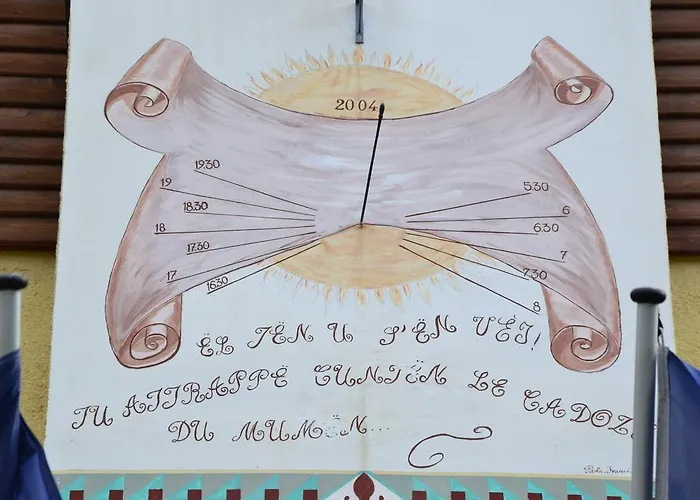 2004
19.30
19
18.30
18
17.30
17
16.30
5.30
6
6.30
7
7.30
8
ËL TËN U S'ËN VËI!
TU ATTRAPPË CUNTËN LE CADOZE
DU MUMËN...